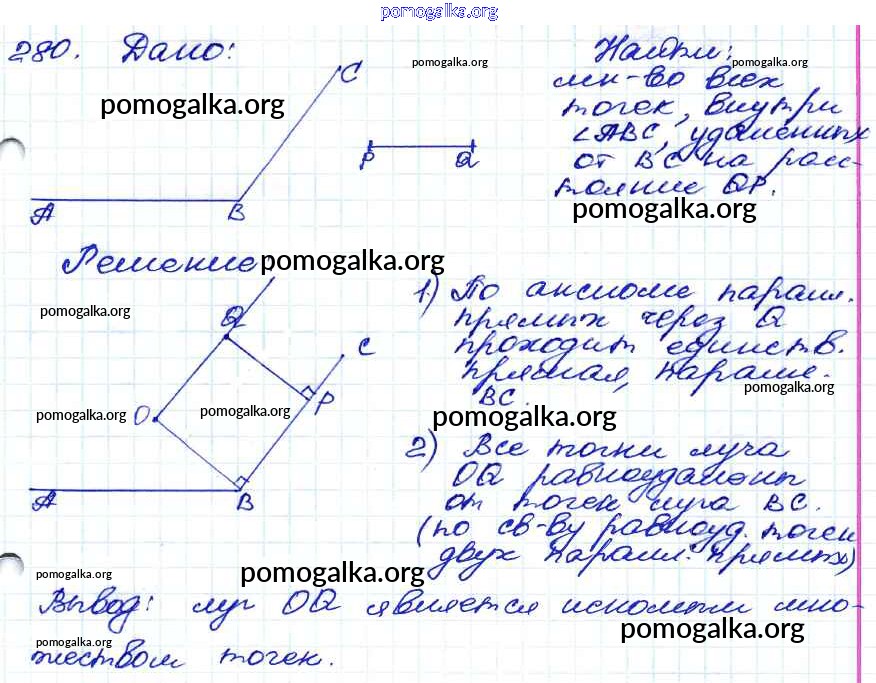 pomogalka.org
280. Дано:
Найти:
мн-во всех
точек, внутри
∠ABC, удаленных
от BC на расс-
тояние QP.
A B C
P Q
pomogalka.org
pomogalka.org
pomogalka.org
pomogalka.org
Решение
pomogalka.org
pomogalka.org
Q C
P
O
A B
pomogalka.org
pomogalka.org
1) По аксиоме паралл.
прямых через Q
проходит единств.
прямая, паралле.
BC.
pomogalka.org
pomogalka.org
2) Все точки луча
OQ равноудалены
от точек луча BC.
(по св-ву равноуд. точек
двух паралл. прямых)
pomogalka.org
pomogalka.org
Вывод: луч OQ является искомым мно-
жеством точек.
pomogalka.org
pomogalka.org